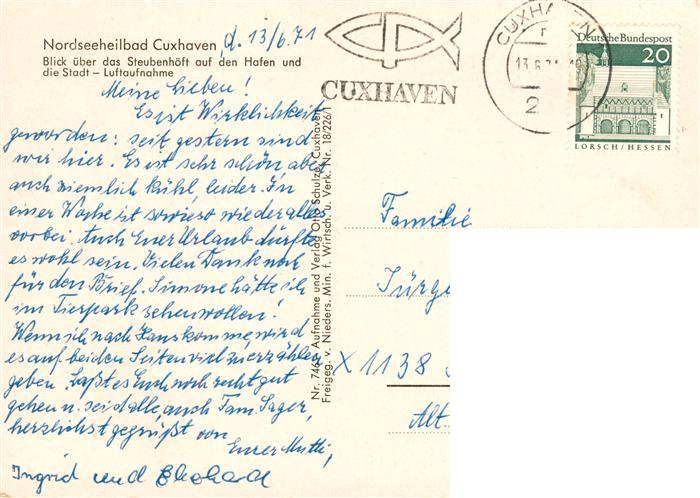 Nordseeheilbad Cuxhaven, d. 13/6.71
Blick über das Steubenhöft auf den Hafen und
die Stadt – Luftaufnahme
Meine Lieben!
Es ist Wirklichkeit
geworden: seit gestern sind
wir hier. Es ist sehr schön aber
auch ziemlich kühl leider. In
einer Woche ist sowieso wieder alles
vorbei. Auch Euer Urlaub dürfte
es wohl sein. Vielen Dank noch
für den Brief. Simone hätte ich
im Tierpark sehen wollen!
Wenn ich nach Hans komme, wird
es auf beiden Seiten viel zu erzählen
geben. Laßt es Euch noch recht gut
gehen u. seid alle, auch Fam. Sager,
herzlichst gegrüßt von
Eurer Mutti,
Ingrid und Ekehard
Nr. 746 Aufnahme und Verlag Otto Schulze, Cuxhaven
Freigeg. v. Nieders. Min. f. Wirtsch. u. Verk. Nr. 18/226/1
CUXHAVEN
CUXHAVEN
13.6.71
2
Deutsche Bundespost
20
LORSCH/HESSEN
Familie
Jürge
X 1138
Alt.